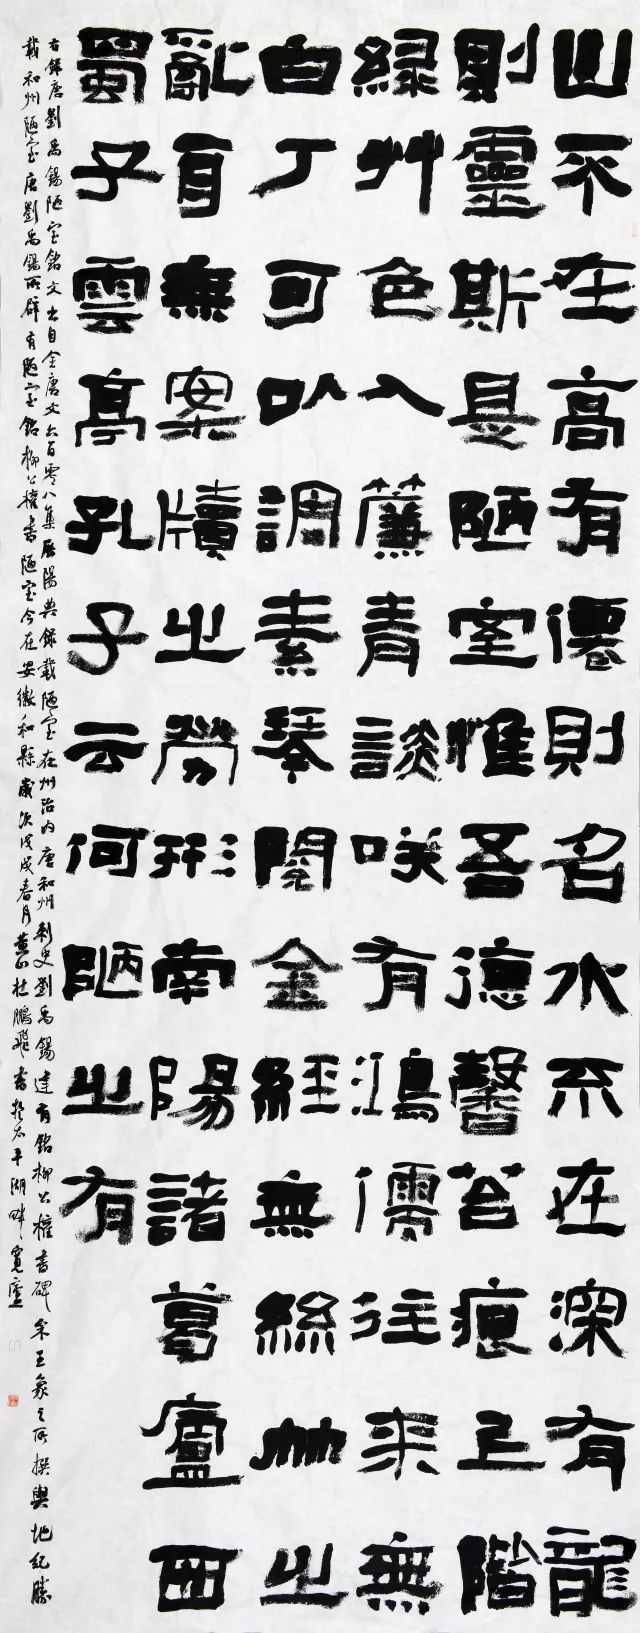 山不在高有僊則名水不在深有龍
則靈斯是陋室惟吾德馨苔痕上階
綠艸色入簾青談咲有鴻儒往來無
白丁可以調素琴閱金經無絲竹之
亂耳無案牘之勞形南陽諸葛廬西
蜀子雲亭孔子云何陋之有
右錄唐劉禹錫陋室銘文出自全唐文六百零八集歷陽典錄載陋室在州治內唐和州刺史劉禹錫建有銘柳公權書碑宋王象之所撰輿地紀勝
載和州陋室唐劉禹錫所辟有陋室銘柳公權書陋室今在安徽和縣歲次戊戌春月黃山杜鵬飛書於太平湖畔寬廬